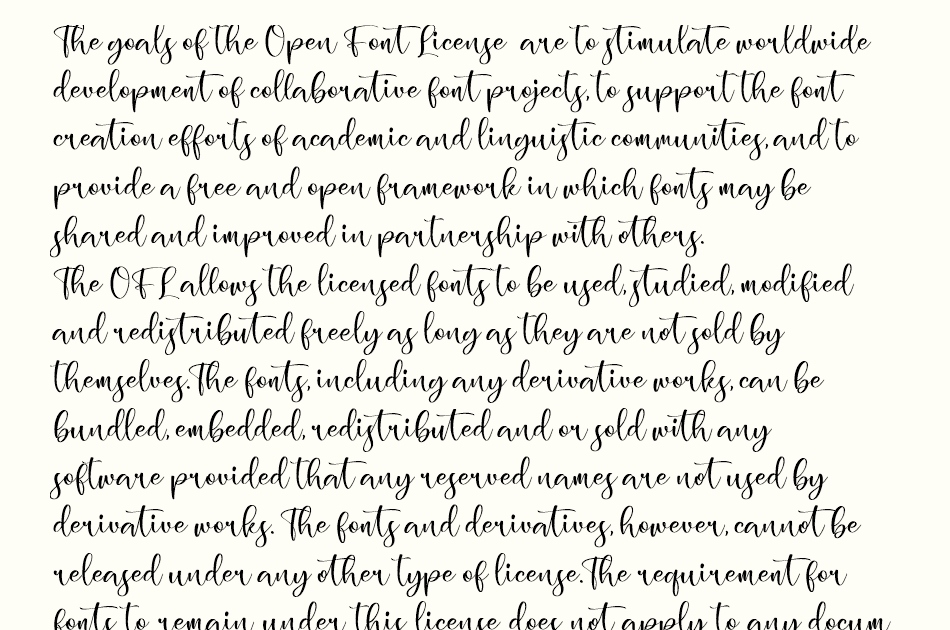 The goals of the Open Font License are to stimulate worldwide
development of collaborative font projects, to support the font
creation efforts of academic and linguistic communities, and to
provide a free and open framework in which fonts may be
shared and improved in partnership with others.
The OFL allows the licensed fonts to be used, studied, modified
and redistributed freely as long as they are not sold by
themselves. The fonts, including any derivative works, can be
bundled, embedded, redistributed and or sold with any
software provided that any reserved names are not used by
derivative works. The fonts and derivatives, however, cannot be
released under any other type of license. The requirement for
fonts to remain under this license does not apply to any docum